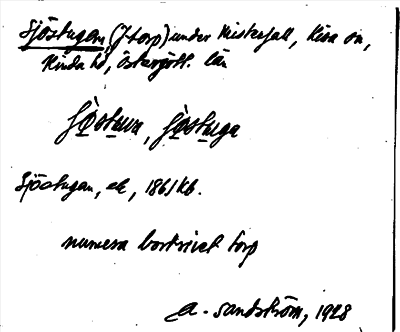 Sjöstugan, (Jtorp) under Misterfall, Kisa sn,
Kinda hd, Östergötl. län
Sjöstugan, ek, 1861 kb.
numera bortrivet torp
A. Sandström, 1928